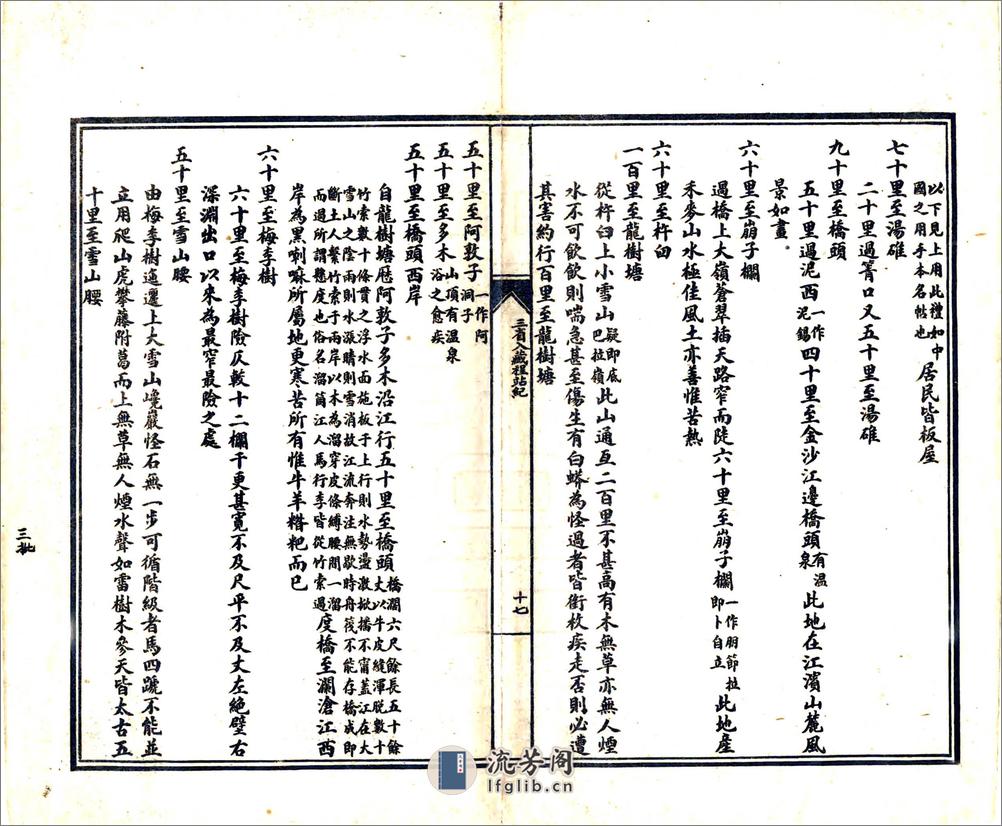 以下見上用此禮如中國之用手本名帖也居民皆板屋
七十里至湯碓
二十里過箐口又五十里至湯碓
九十里至橋頭
五十里過泥西一作泥錫四十里至金沙江邊橋頭有溫泉此地在江濱山麓風
景如畫
六十里至崩子欄
過橋上大嶺蒼翠插天路窄而陡六十里至崩子欄一作朋節拉即卜自立此地產
禾麥山水極佳風土亦善惟苦熱
六十里至杵臼
一百里至龍樹塘
從杵臼上小雪山疑即底巴拉嶺此山通亙二百里不甚高有木無草亦無人煙
水不可飲飲則喘急甚至傷生有白蟒為怪過者皆銜枚疾走否則必遭
其害約行百里至龍樹塘
三省入藏程站紀
十七
五十里至阿敦子一作阿洞子
五十里至多木山頂有溫泉浴之愈疾
五十里至橋頭西岸
自龍樹塘歷阿敦子多木沿江行五十里至橋頭橋濶六尺餘長五十餘
丈以牛皮縫渾脫數十
竹索數十條貫之浮水面施板于上行則水勢盪激掀搖不甯蓋江在大
雪山之陰雨則水漲晴則雪消故江流奔注無歇時舟筏不能存橋或即
斷土人繫竹索于兩岸以木為溜穿皮條縛腰間一溜
而過所謂懸度也俗名溜筒江人馬行李皆從竹索過度橋至瀾滄江西
岸為黑喇嘛所屬地更寒苦所有惟牛羊糌粑而已
六十里至梅李樹
六十里至梅李樹險仄較十二欄干更甚寬不及尺平不及丈左絕壁右
深淵出口以來為最窄最險之處
五十里至雪山腰
由梅李樹迤邐上大雪山巉巖怪石無一步可循階級者馬四蹏不能並
立用爬山虎攀藤附葛而上無草無人煙水聲如雷樹木參天皆太古五
十里至雪山腰
三批
流芳閣
lfglib.cn